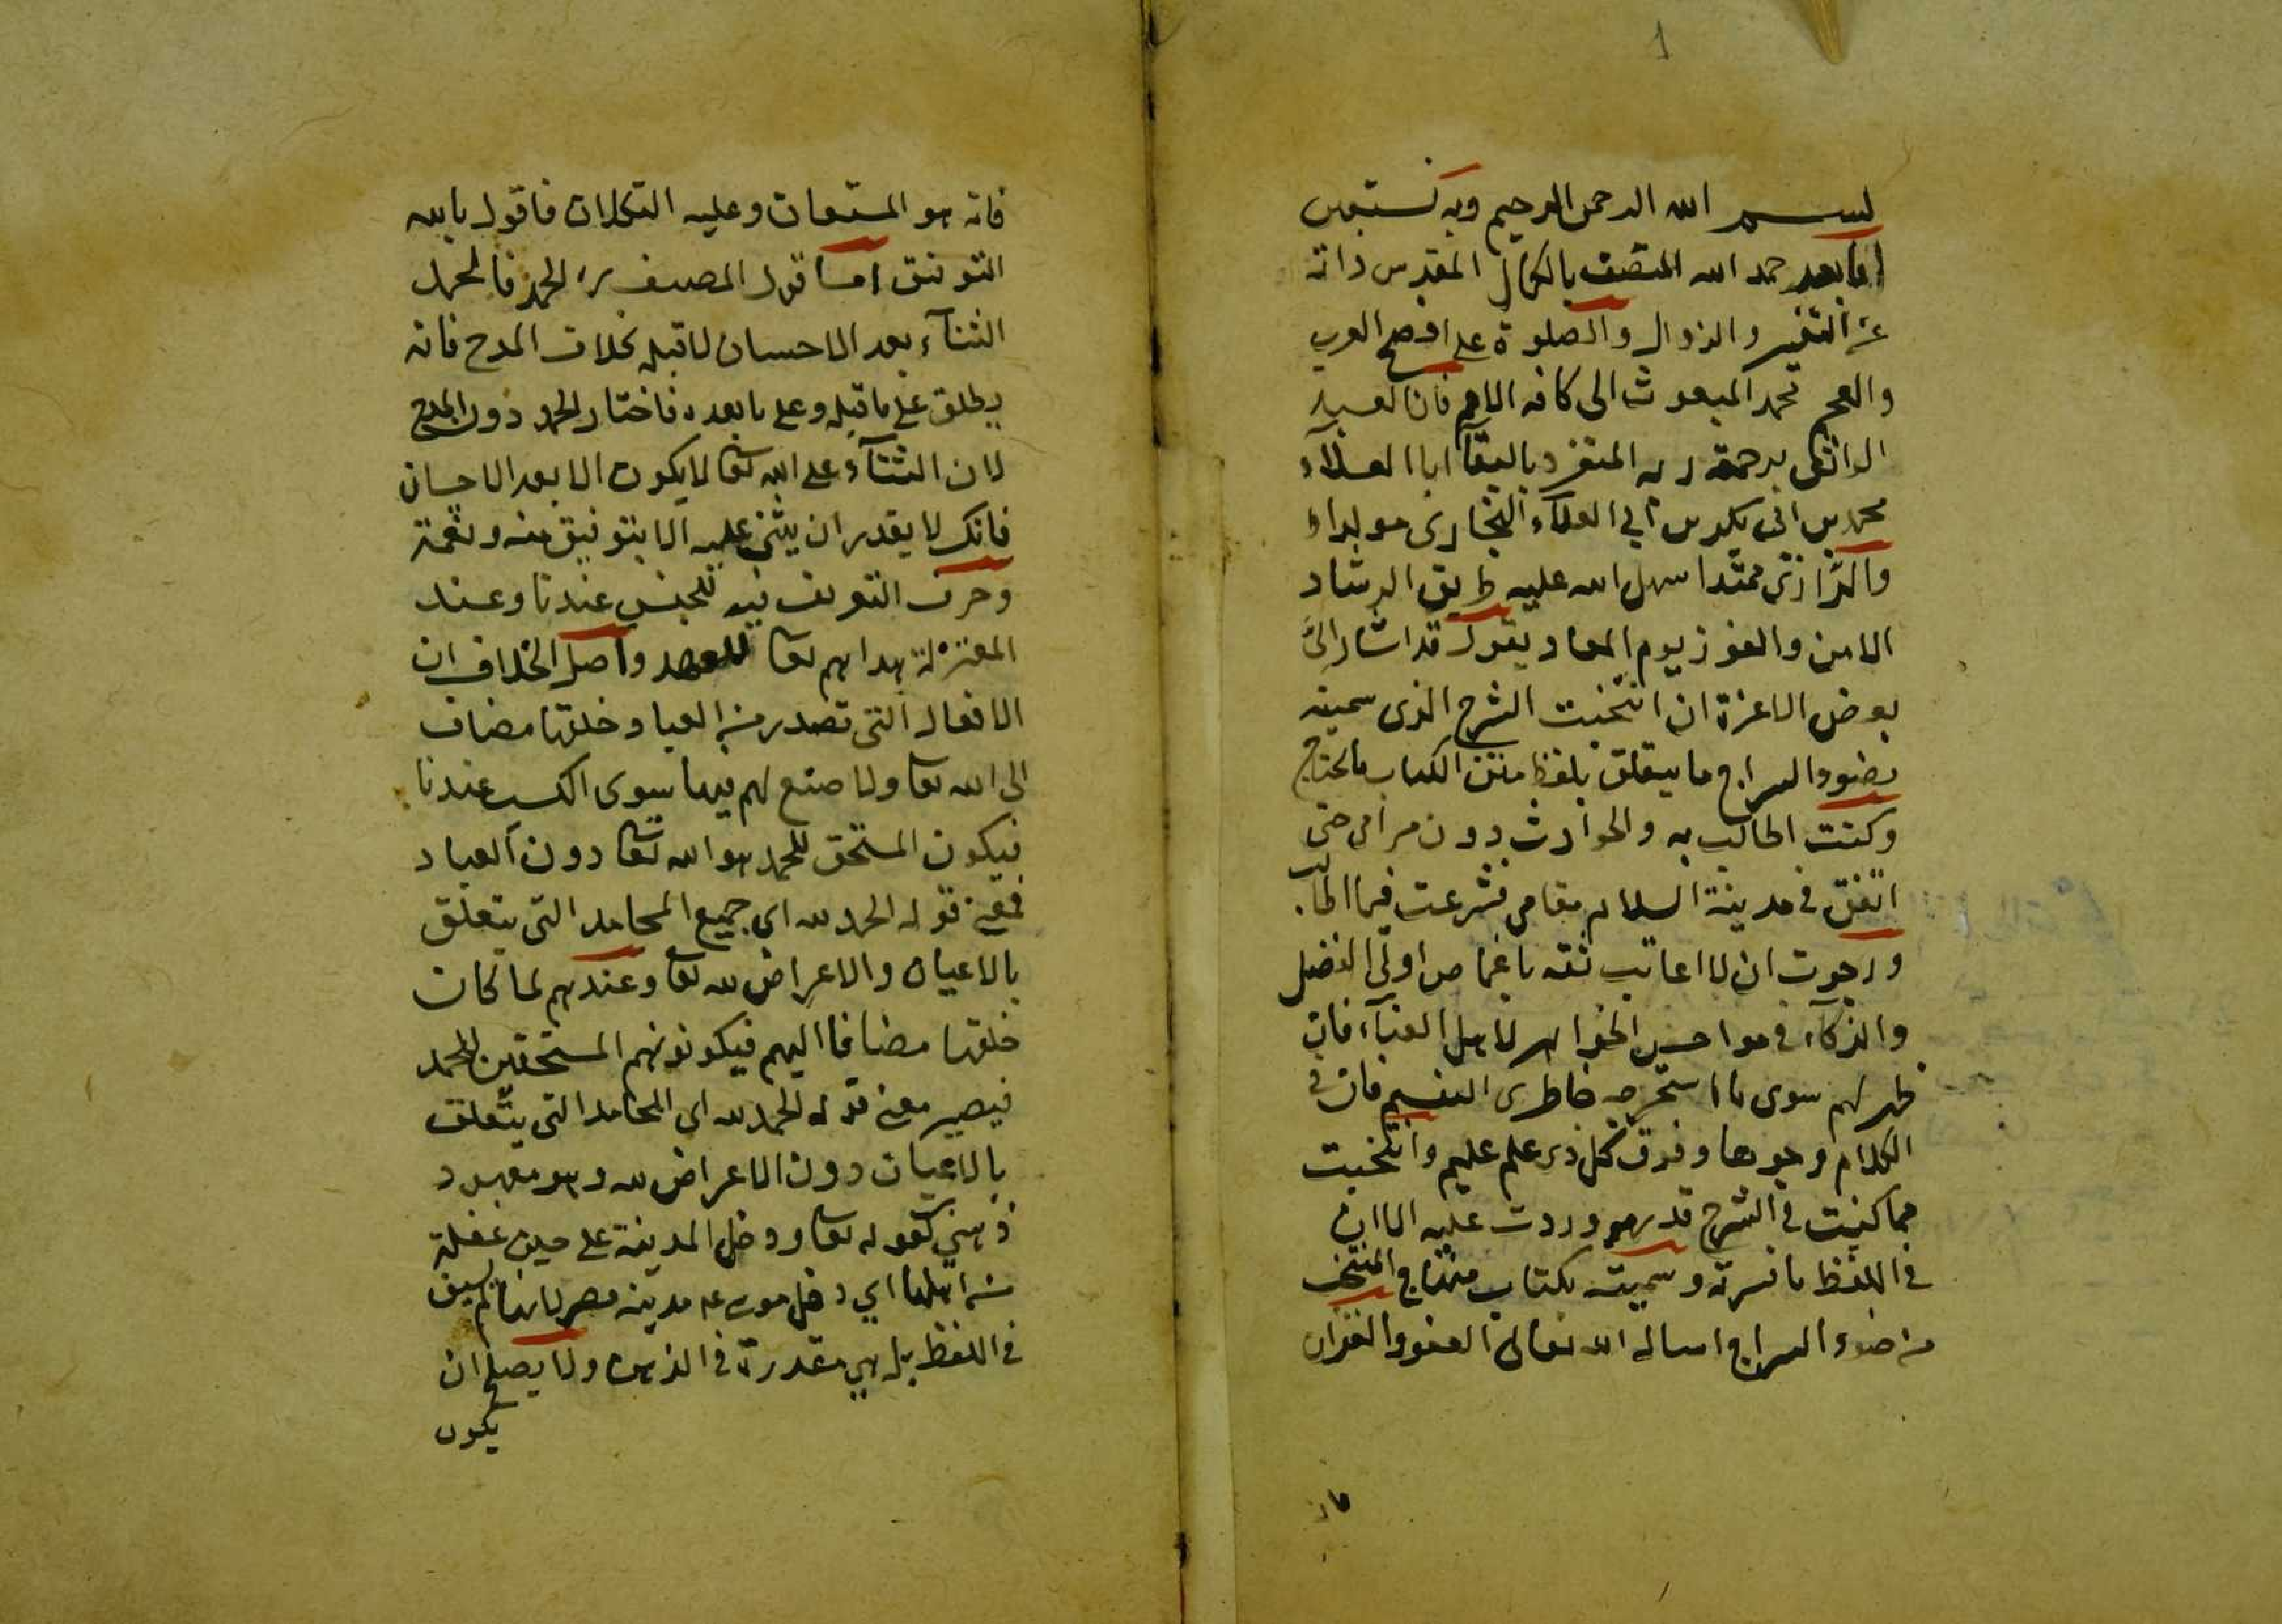 1
بسم الله الرحمن الرحيم وبه نستعين
اما بعد حمد الله المتصف بالكمال المقدس ذاته
عن التغير والزوال والصلوة على افصح العرب
والعجم محمد المبعوث الى كافة الامم فان العبد
الواثق برحمة ربه المتفرد بالبقآ ابا العلاء
محمد بن ابى بكر بن أبي العلاء البخارى مولدا
والرازى محتدا سهل الله عليه طريق الرشاد
الامن والفوز يوم المعاد يقول قد اشار الىّ
بعض الاعزة ان انتخبت الشرح الذى سميته
بضوء السراج ما يتعلق بلفظ متن الكتاب ما يحتاج
وكنت اطالب به والحوادث دون مرامى حتى
اتفق في مدينة السلام مقامى فشرعت فيما اطالب
ورجوت ان لا اعاتب ثقة باغماض اولى الفضل
والذكاء في مواحسن الخواهر لاهل الغبآء فان
ظهر لهم سوى ما استخرجه خاطرى السقيم فان في
الكلام وجوها وفوق كل ذى علم عليم وانتخبت
مما كنيت في الشرح قدر ووردت عليه الا ان
في اللفظ ما فسرته وسميته بكتاب منهاج المنتخب
من ضوء السراج اسال الله تعالى العفو والغفران
فانه هو المستعان وعليه التكلان فاقول بالله
التوفيق اما قول المصنف رح الحمد فالحمد
الثنآء بعد الاحسان لا قبله بخلاف المدح فانه
يطلق على ما قبله وعلى ما بعده فاختار الحمد دون المدح
لان الثنآء على الله تعا لا يكون الا بعد الاحسان
فانك لا يقدر ان يثنى عليه الا بتوفيق منه ونعمة
وحرف التعريف فيه للجنس عندنا وعند
المعتزلة هداهم تعا للعهد واصل الخلاف ان
الافعال التى تصدر من العباد خلقها مضاف
الى الله تعا ولا صنع لهم فيها سوى الكسب عندنا
فيكون المستحق للحمد هو الله تعا دون العباد
فمعنى قوله الحمد لله اى جميع المحامد التى يتعلق
بالاعيان والاعراض لله تعا وعندهم لما كان
خلقها مضافا اليهم فيكونونهم المستحقين للحمد
فيصير معنى قوله الحمد لله اى المحامد التى يتعلق
بالاعيان دون الاعراض لله وهو معهود
ذهني كقوله تعا ودخل المدينة على حين غفلة
من اهلها اي دخل موسى عم مدينة مصر لانها لم يسبق
في اللفظ بل هي مقدرة في الذهن ولا يصلح ان
يكون